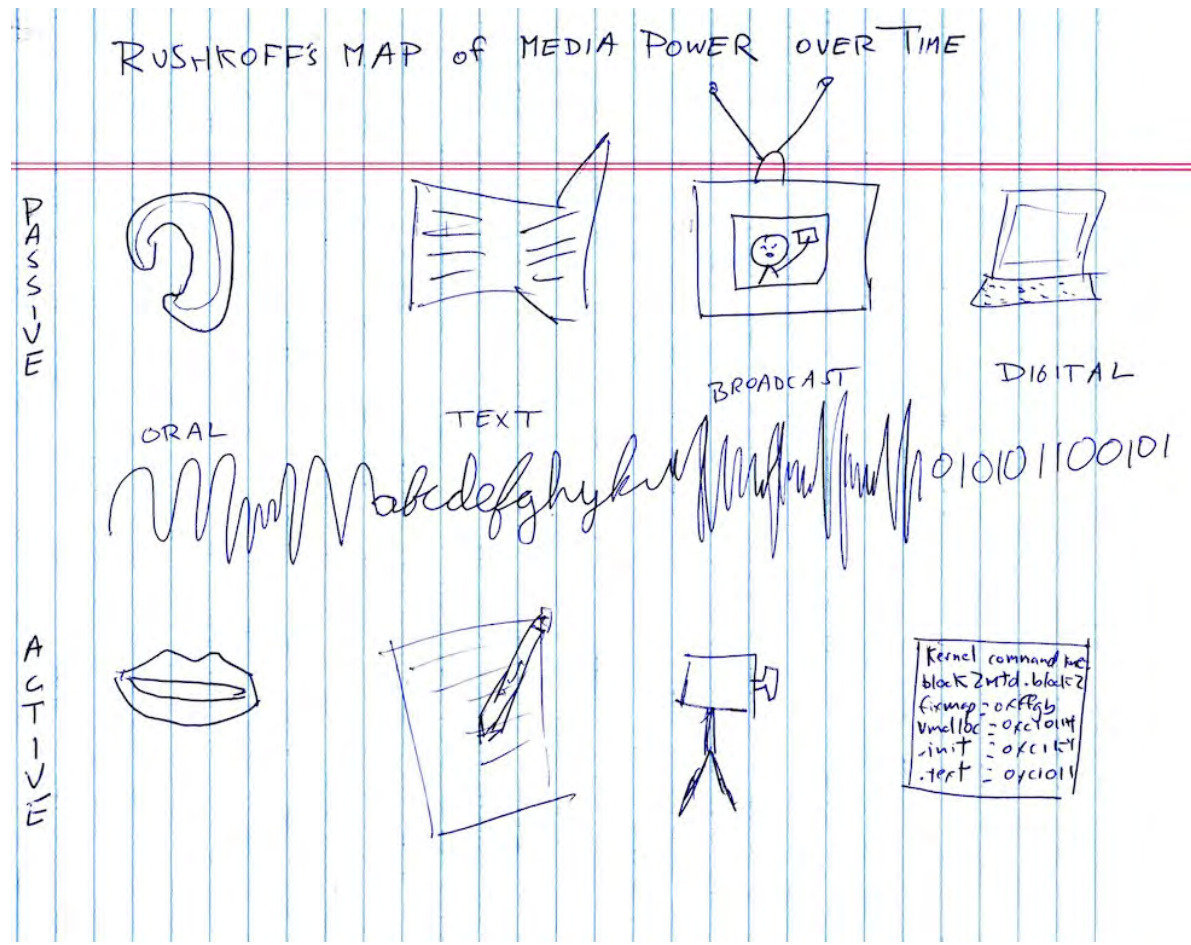 RUSHKOFF'S MAP of MEDIA POWER OVER TIME
PASSIVE
ORAL
TEXT
BROADCAST
DIGITAL
abcdefghyk
010101100101
ACTIVE
Kernel command
block2mtd.block2
fixmap = 0xffgb
vmalloc =
.init =
.text =